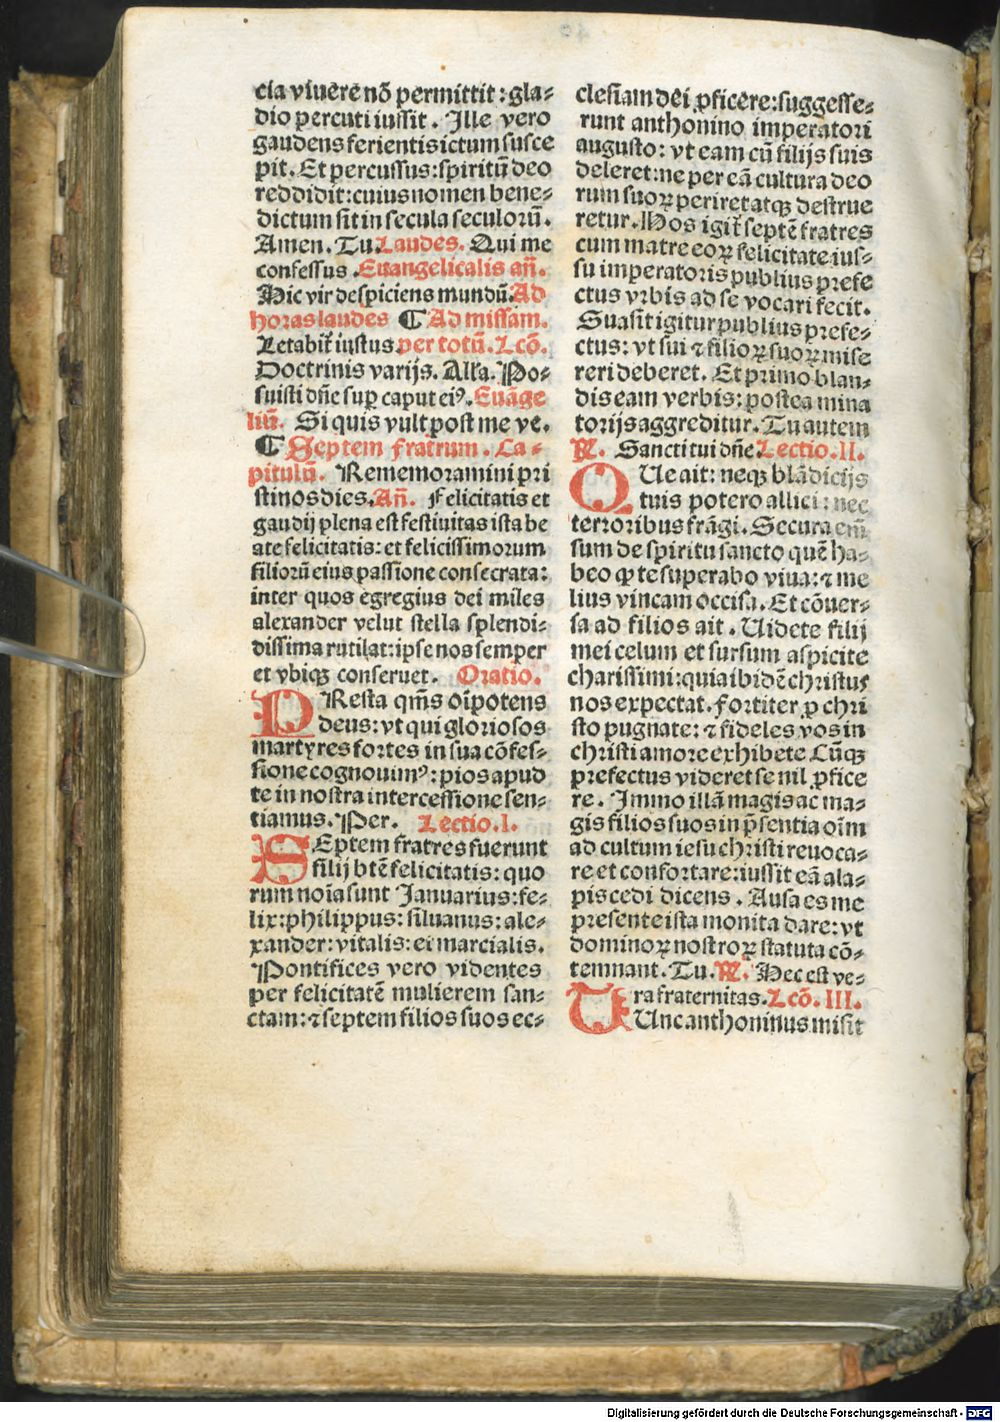 cia viuere nō permittit : gla⸗
dio percuti iussit . Ille vero
gaudens ferientis ictum susce
pit. Et percussus: spiritū deo
reddidit: cuius nomen bene⸗
dictum sit in secula seculorū.
Amen. Tu. Laudes. Qui me
confessus . Euangelicalis añ.
Hic vir despiciens mundū. Ad
horas laudes ¶ Ad missam.
Letabit᷑ iustus per totū. Lcō.
Doctrinis varijs. Alľa. Po⸗
suisti dñe suꝑ caput eiꝰ. Euāge
liū. Si quis vult post me ve.
¶ Septem fratrum. Ca⸗
pitulū. Rememoramini pri
stinos dies. Añ. Felicitatis et
gaudij plena est festiuitas ista be
ate felicitatis: et felicissimorum
filiorū eius passione consecrata:
inter quos egregius dei miles
alexander velut stella splendi⸗
dissima rutilat: ipse nos semper
et vbiqꝫ conseruet. Oratio.
PResta qm̄s oīpotens
deus: vt qui gloriosos
martyres fortes in sua cōfes⸗
sione cognouimꝰ: pios apud
te in nostra intercessione sen⸗
tiamus. Per. Lectio. I.
SEptem fratres fuerunt
filij btē felicitatis: quo
rum noīa sunt Januarius: fe⸗
lix: philippus: siluanus: ale⸗
xander: vitalis: et marcialis.
Pontifices vero videntes
per felicitatē mulierem san⸗
ctam: ⁊ septem filios suos ec⸗
clesiam dei ꝓficere: suggesse⸗
runt anthonino imperatori
augusto: vt eam cū filijs suis
deleret: ne per eā cultura deo
rum suoꝝ periret atqꝫ destrue
retur. Hos igit᷑ septē fratres
cum matre eoꝝ felicitate ius⸗
su imperatoris publius prefe
ctus vrbis ad se vocari fecit.
Suasit igitur publius prefe⸗
ctus: vt sui ⁊ filioꝝ suoꝝ mise
reri deberet. Et primo blan⸗
dis eam verbis: postea mina
torijs aggreditur. Tu autem
℟. Sancti tui dñe Lectio. II.
QUe ait: neqꝫ blādicijs
tuis potero allici: nec
terroribus frāgi. Secura em̄
sum de spiritu sancto quē ha⸗
beo ꝙ te superabo viua: ⁊ me
lius vincam occisa. Et cōuer⸗
sa ad filios ait. Uidete filij
mei celum et sursum aspicite
charissimi: quia ibidē christus
nos expectat. fortiter ꝓ chri
sto pugnate: ⁊ fideles vos in
christi amore exhibete Cūqꝫ
prefectus videret se nil ꝓfice
re. Immo illā magis ac ma⸗
gis filios suos in p̄sentia oīm
ad cultum iesu christi reuoca⸗
re et confortare: iussit eā ala⸗
pis cedi dicens. Ausa es me
presente ista monita dare: vt
dominoꝝ nostroꝝ statuta cō⸗
temnant. Tu. ℟. Hec est ve⸗
ra fraternitas. Lcō. III.
TUnc anthoninus misit
Digitalisierung gefördert durch die Deutsche Forschungsgemeinschaft - DFG